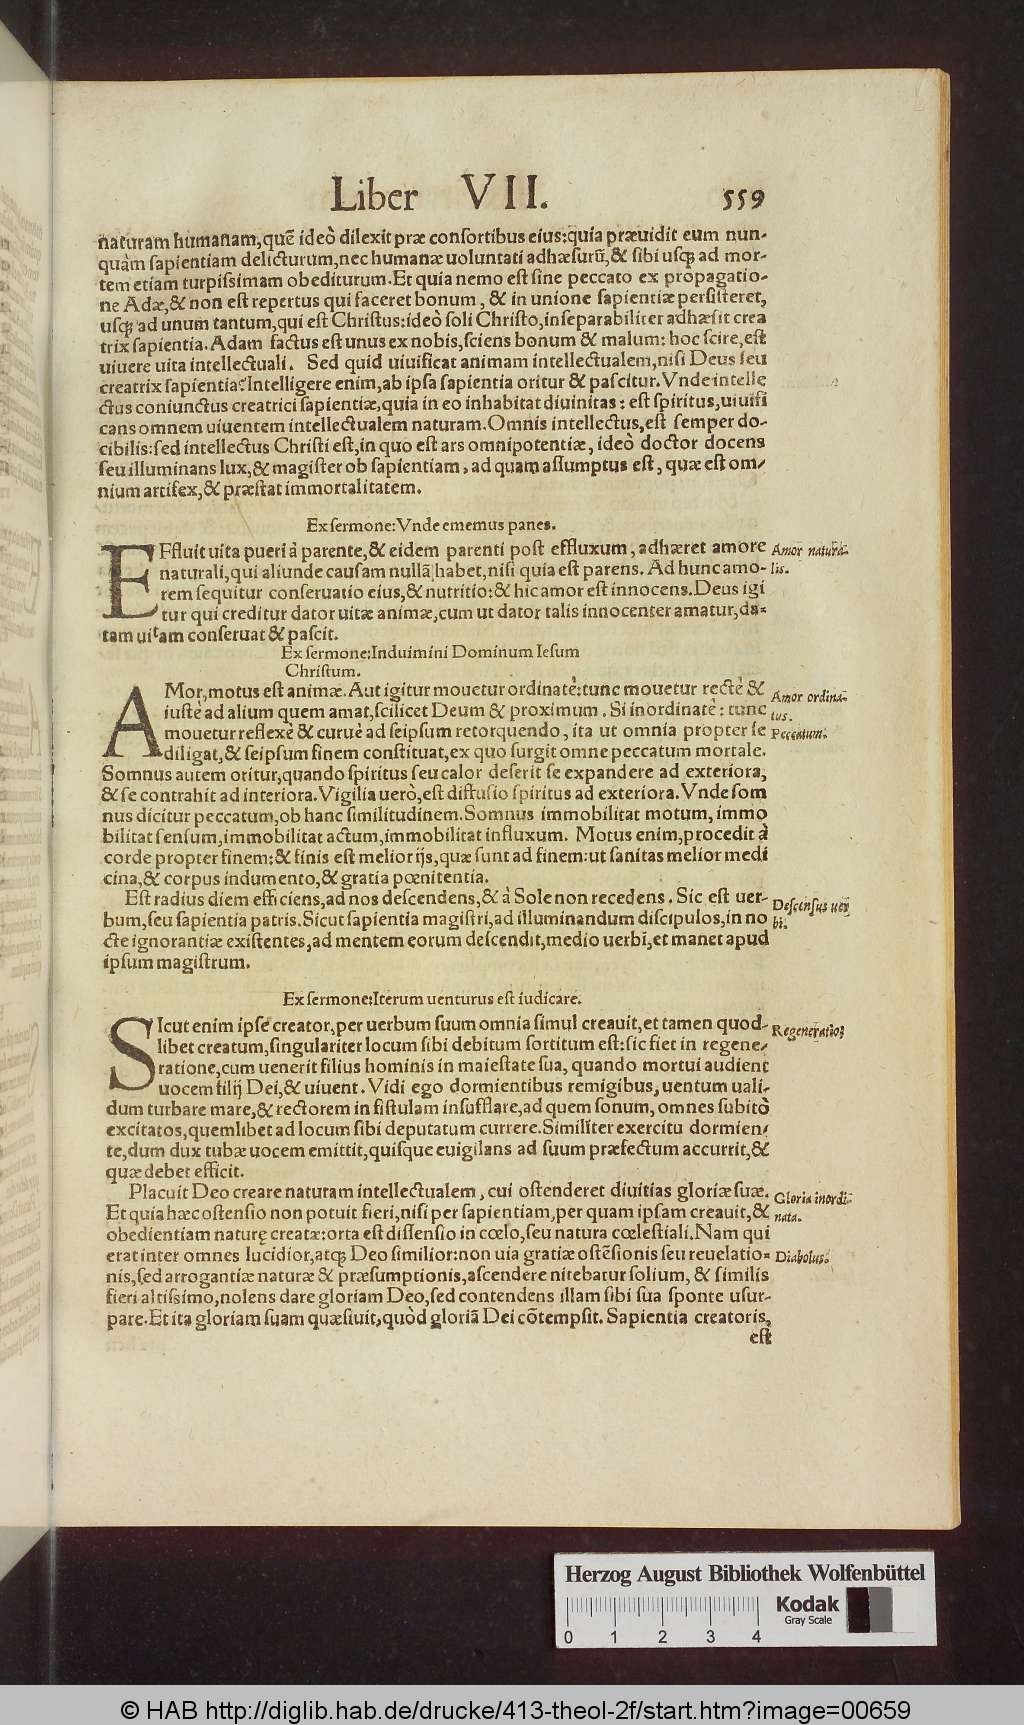 Liber VII. 559
naturam humanam,quē ideò dilexit præ conſortibus eius:quia præuidit eum nun-
quàm ſapientiam delicturum,nec humanæ uoluntati adhæſurū,& ſibi uſq; ad mor-
tem etiam turpiſsimam obediturum.Et quia nemo eſt ſine peccato ex propagatio-
ne Adæ,& non eſt repertus qui faceret bonum, & in unione ſapientiæ perſiſteret,
uſq; ad unum tantum,qui eſt Chriſtus:ideò ſoli Chriſto,inſeparabiliter adhæſit crea
trix ſapientia.Adam factus eſt unus ex nobis,ſciens bonum & malum: hoc ſcire,eſt
uiuere uita intellectuali. Sed quid uiuificat animam intellectualem,niſi Deus ſeu
creatrix ſapientia?Intelligere enim,ab ipſa ſapientia oritur & paſcitur.Vnde intelle
ctus coniunctus creatrici ſapientiæ,quia in eo inhabitat diuinitas: eſt ſpiritus,uiuifi
cans omnem uiuentem intellectualem naturam.Omnis intellectus,eſt ſemper do-
cibilis:ſed intellectus Chriſti eſt,in quo eſt ars omnipotentiæ, ideò doctor docens
ſeu illuminans lux,& magiſter ob ſapientiam, ad quam aſſumptus eſt, quæ eſt om-
nium artifex,& præſtat immortalitatem.
Ex ſermone:Vnde ememus panes.
EFfluit uita pueri à parente,& eidem parenti poſt effluxum, adhæret amore
Amor naturā-
naturali,qui aliunde cauſam nullā habet,niſi quia eſt parens. Ad hunc amo-
lis.
rem ſequitur conſeruatio eius,& nutritio:& hic amor eſt innocens.Deus igi
tur qui creditur dator uitæ animæ,cum ut dator talis innocenter amatur,da-
tam uitam conſeruat & paſcit.
Ex ſermone:Induimini Dominum Ieſum
Chriſtum.
AMor,motus eſt animæ.Aut igitur mouetur ordinatè:tunc mouetur rectè &
Amor ordina-
iuſtè ad alium quem amat,ſcilicet Deum & proximum. Si inordinatè: tunc
tus.
mouetur reflexè & curuè ad ſeipſum retorquendo, ita ut omnia propter ſe
Peccatum.
diligat,& ſeipſum finem conſtituat,ex quo ſurgit omne peccatum mortale.
Somnus autem oritur,quando ſpiritus ſeu calor deſerit ſe expandere ad exteriora,
& ſe contrahit ad interiora.Vigilia uerò,eſt diffuſio ſpiritus ad exteriora.Vnde ſom
nus dicitur peccatum,ob hanc ſimilitudinem.Somnus immobilitat motum, immo
bilitat ſenſum,immobilitat actum,immobilitat influxum. Motus enim,procedit à
corde propter finem:& finis eſt melior ijs,quæ ſunt ad finem:ut ſanitas melior medi
cina,& corpus indumento,& gratia pœnitentia.
Eſt radius diem efficiens,ad nos deſcendens,& à Sole non recedens. Sic eſt uer-
Deſcenſus uer
bum,ſeu ſapientia patris.Sicut ſapientia magiſtri,ad illuminandum diſcipulos,in no
bi.
cte ignorantiæ exiſtentes,ad mentem eorum deſcendit,medio uerbi,et manet apud
ipſum magiſtrum.
Ex ſermone:Iterum uenturus eſt iudicare.
SIcut enim ipſe creator,per uerbum ſuum omnia ſimul creauit,et tamen quod-
Regeneratio;
libet creatum,ſingulariter locum ſibi debitum ſortitum eſt:ſic fiet in regene-
ratione,cum uenerit filius hominis in maieſtate ſua, quando mortui audient
uocem filij Dei,& uiuent. Vidi ego dormientibus remigibus, uentum uali-
dum turbare mare,& rectorem in fiſtulam inſufflare,ad quem ſonum, omnes ſubitò
excitatos,quemlibet ad locum ſibi deputatum currere.Similiter exercitu dormien-
te,dum dux tubæ uocem emittit,quiſque euigilans ad ſuum præfectum accurrit,&
quæ debet efficit.
Placuit Deo creare naturam intellectualem, cui oſtenderet diuitias gloriæ ſuæ.
Gloria inordi-
Et quia hæc oſtenſio non potuit fieri,niſi per ſapientiam,per quam ipſam creauit,&
nata.
obedientiam naturę creatæ:orta eſt diſſenſio in cœlo,ſeu natura cœleſtiali.Nam qui
erat inter omnes lucidior,atq; Deo ſimilior:non uia gratiæ oſtēſionis ſeu reuelatio-
Diabolus.
nis,ſed arrogantiæ naturæ & præſumptionis,aſcendere nitebatur ſolium, & ſimilis
fieri altiſsimo,nolens dare gloriam Deo,ſed contendens illam ſibi ſua ſponte uſur-
pare.Et ita gloriam ſuam quæſiuit,quòd gloriā Dei cōtempſit. Sapientia creatoris,
eſt
Herzog August Bibliothek Wolfenbüttel
Kodak
Gray Scale
0 1 2 3 4
© HAB http://diglib.hab.de/drucke/413-theol-2f/start.htm?image=00659